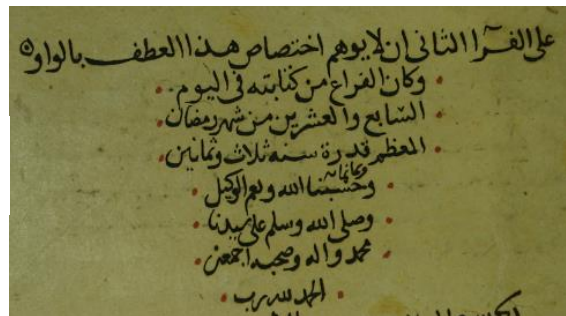 على الفرآ الثانى ان لا يوهم اختصاص هذا العطف بالواو
وكان الفراغ من كتابته فى اليوم
السابع والعشرين من شهر رمضان
المعظم قدرة سنه ثلاث وثمانين
وثمانمائه
وحسبنا الله ونعم الوكيل
وصلى الله وسلم على سيدنا
محمد واله وصحبه اجمعين
الحمد لله رب